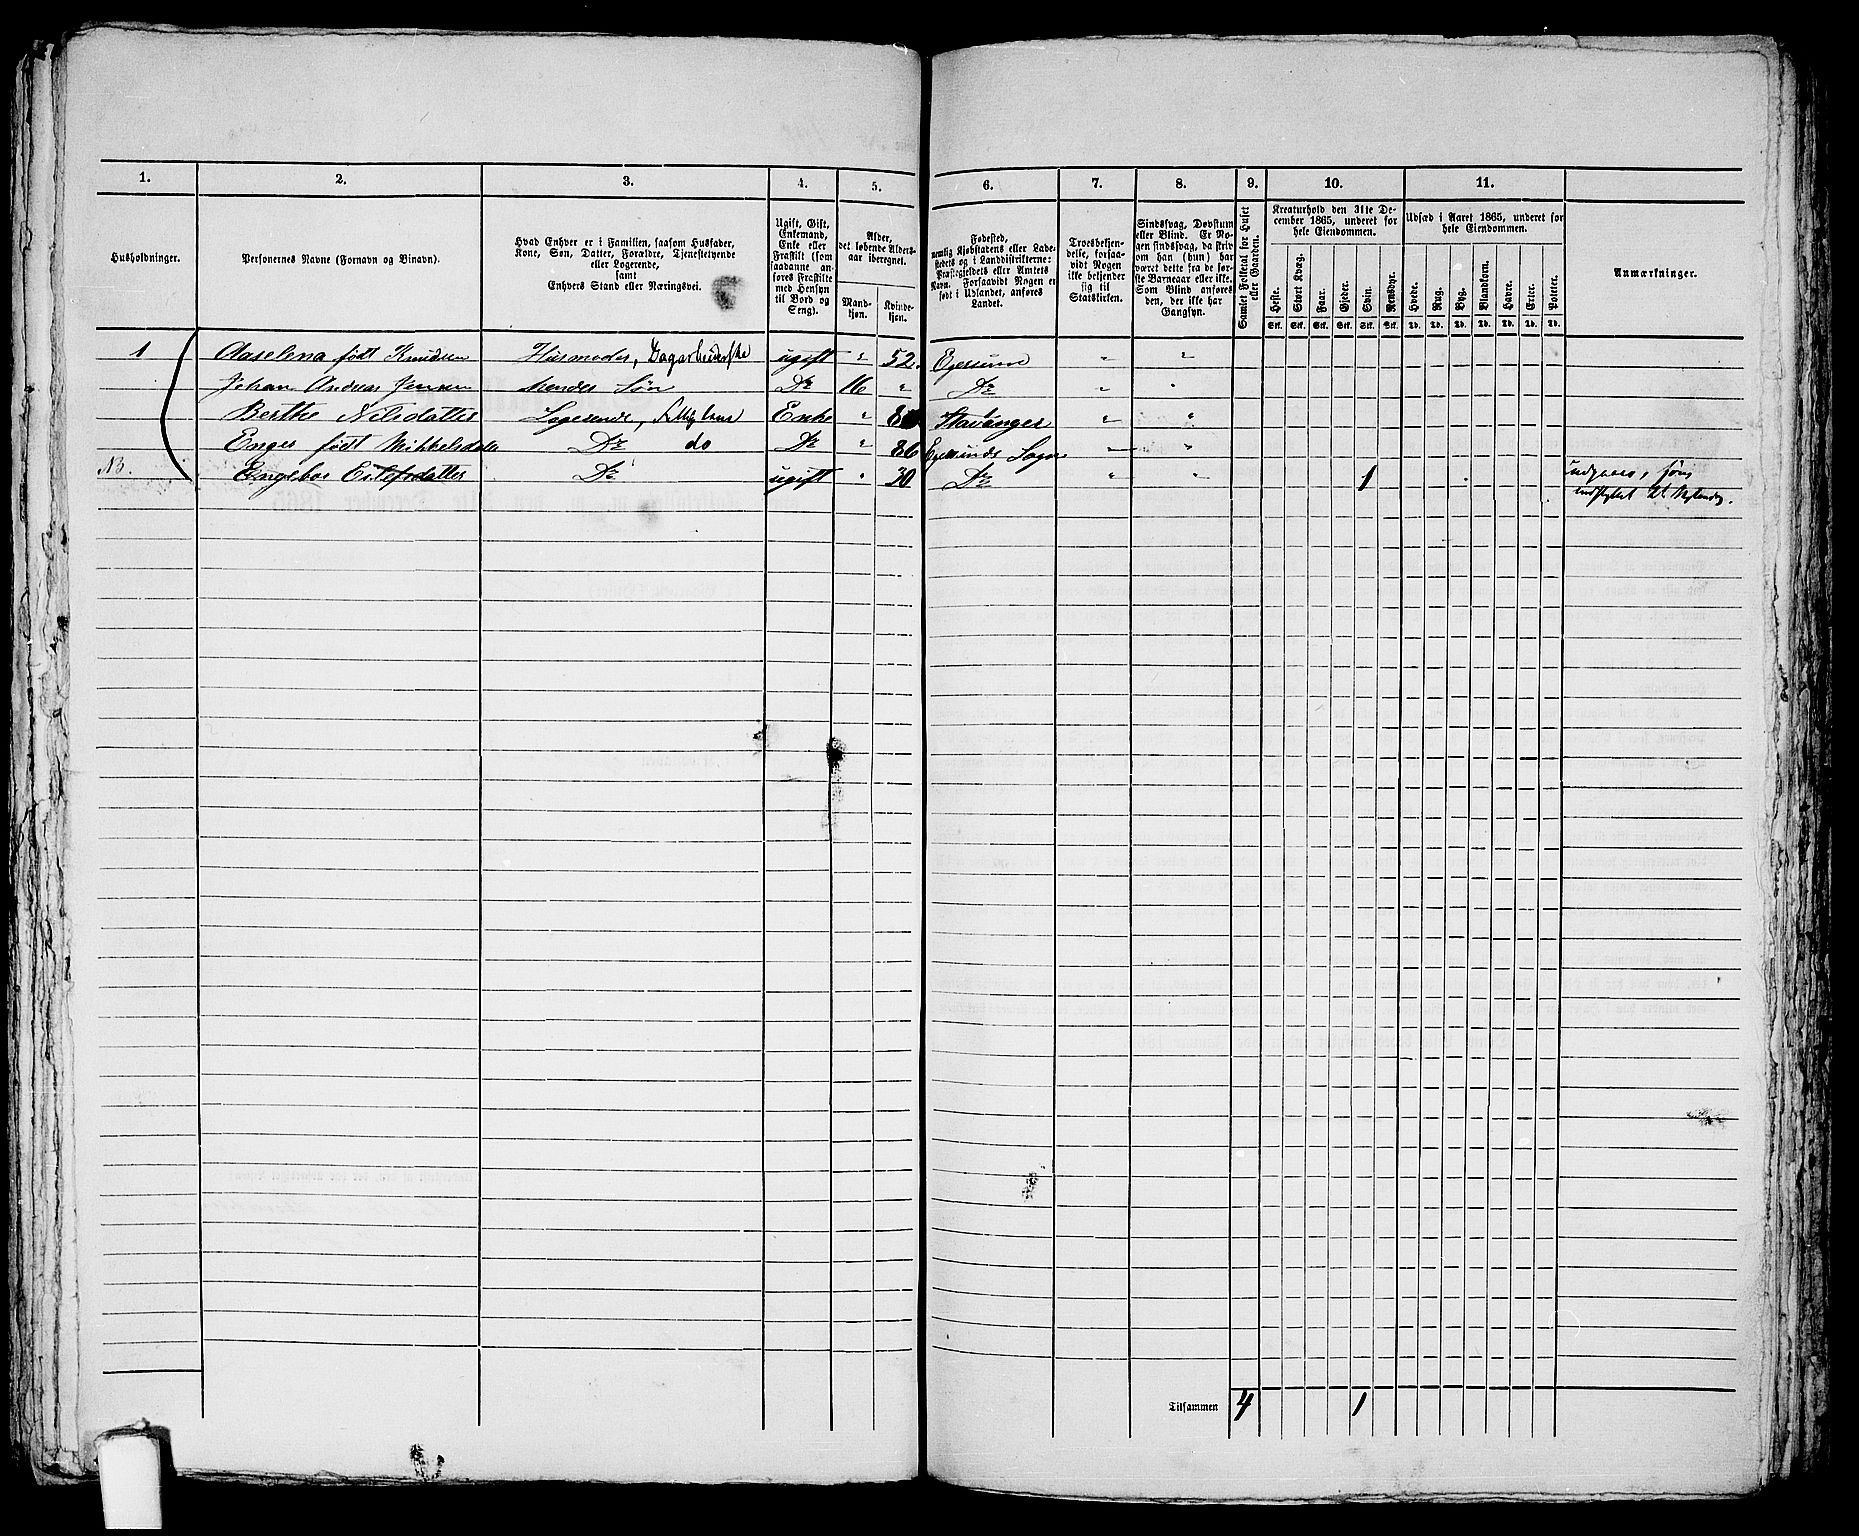 1. 2. 3. 4. 5. 6. 7. 8. 9. 10. 11.
Husholdninger.
Personernes Navne (Fornavn og Binavn).
Hvad Enhver er i Familien, saasom Husfader,
Kone, Søn, Datter, Forældre, Tjenestetyende
eller Logerende,
samt
Enhvers Stand eller Næringsvei.
Ugift, Gift,
Enkemand,
Enke eller
Fraskilt (som
saadanne an-
føres Fraskilte
med Hensyn
til Bord og
Seng).
Alder,
det løbende Alders-
aar iberegnet.
Mand-
kjøn.
Kvinde-
kjøn.
Fødested,
nemlig Kjøbstadens eller Lade-
stedets og i Landdistrikterne:
Præstegjeldets eller Amtets
Navn. Forsaavidt Nogen er
født i Udlandet, anføres
Landet.
Troesbekjen-
delse, forsaa-
vidt Nogen
ikke bekjender
sig til
Statskirken.
Sindssvag, Døvstum
eller Blind. Er No-
gen sindssvag, da skriv
om han (hun) har
været dette fra de før-
ste Barneaar eller ikke.
Som Blind anføres
den, der ikke har
Gangsyn.
Samlet Folketal for Huset
eller Gaarden.
Kreaturhold den 31te De-
cember 1865, underet for
hele Eiendommen.
Heste. Stort Kvæg. Faar. Gjeder. Svin. Rensdyr.
Stk. Stk. Stk. Stk. Stk. Stk.
Udsæd i Aaret 1865, underet for
hele Eiendommen.
Hvede. Rug. Byg. Blandkorn. Havre. Erter. Poteter.
Td. Td. Td. Td. Td. Td. Td.
Anmærkninger.
1 Aaselena født Knudsen Husmoder, Dagarbeiderske ugift " 52. Egersund " "
Johan Andreas Jensen hendes Søn Do 16 " Do " "
Berthe Nilsdatter Logerende, Enke " Stavanger " "
Enger født Mikkelsdatter Do do Do " 86 Egersunds Sogn " "
NB. Do ugift " 30 Do " " 1
Tilsammen 4 1